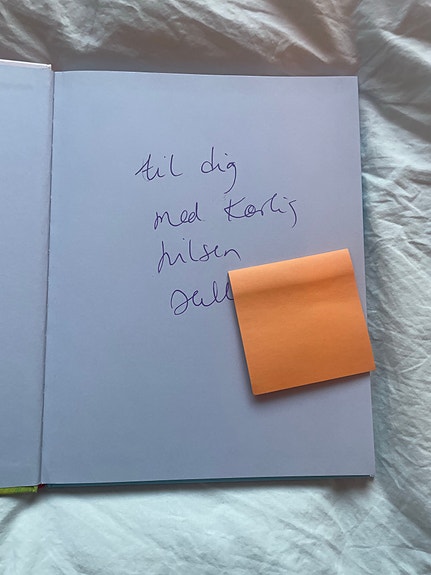 til dig
med Kærlig
hilsen